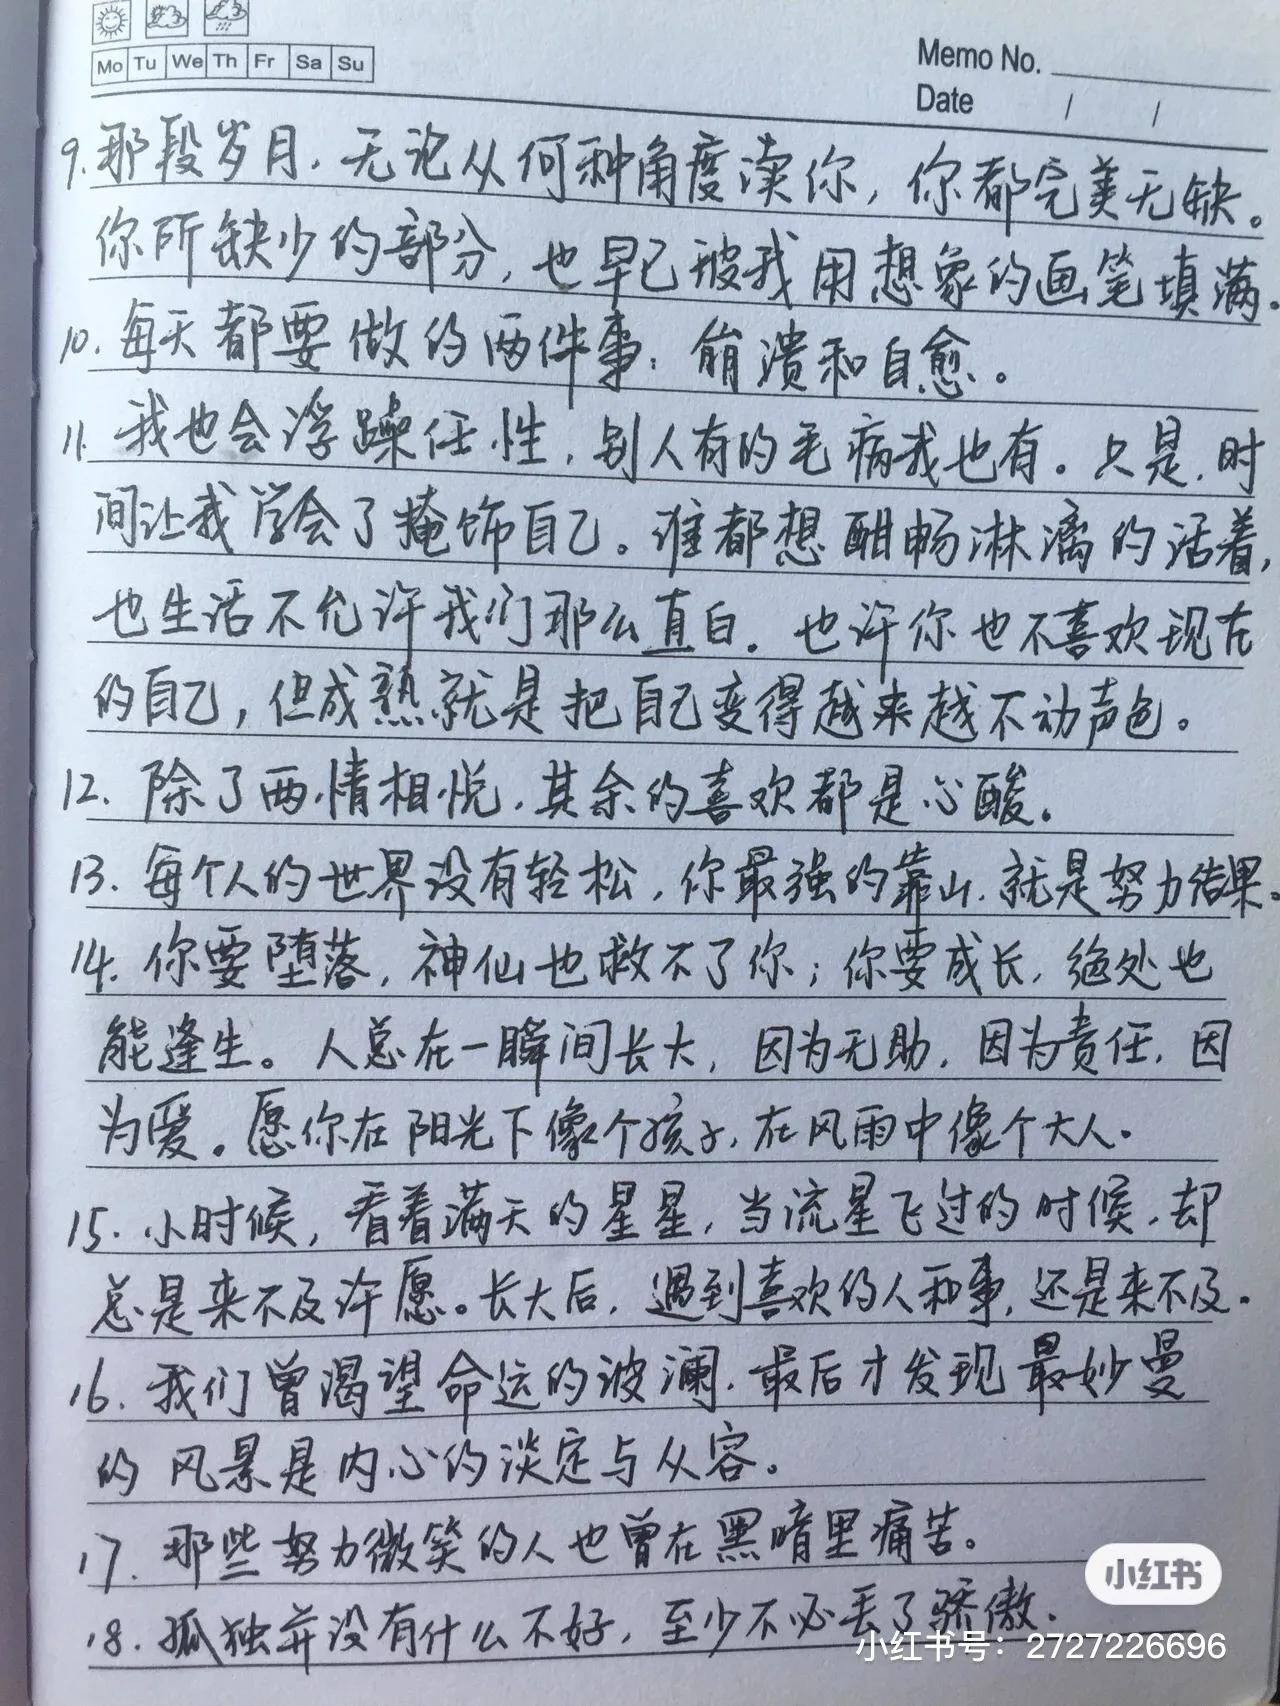 Mo Tu We Th Fr Sa Su
Memo No.
Date / /
9. 那段岁月，无论从何种角度渎你，你都完美无缺。
你所缺少的部分，也早已被我用想象的画笔填满。
10. 每天都要做的两件事：崩溃和自愈。
11. 我也会浮躁任性，别人有的毛病我也有。只是，时
间让我学会了掩饰自己。谁都想酣畅淋漓的活着，
也生活不允许我们那么直白。也许你也不喜欢现在
的自己，但成熟就是把自己变得越来越不动声色。
12. 除了两情相悦，其余的喜欢都是心酸。
13. 每个人的世界没有轻松，你最强的靠山，就是努力结果。
14. 你要堕落，神仙也救不了你；你要成长，绝处也
能逢生。人总在一瞬间长大，因为无助，因为责任，因
为爱。愿你在阳光下像个孩子，在风雨中像个大人。
15. 小时候，看着满天的星星，当流星飞过的时候，却
总是来不及许愿。长大后，遇到喜欢的人和事，还是来不及。
16. 我们曾渴望命运的波澜，最后才发现最妙曼
的风景是内心的淡定与从容。
17. 那些努力微笑的人也曾在黑暗里痛苦。
18. 孤独并没有什么不好，至少不必丢了骄傲．
小红书
小红书号：2727226696